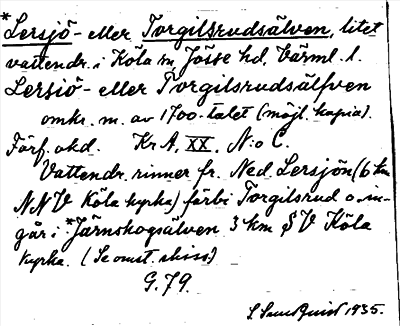 *Lersjö- eller Torgilsrudsälven, litet
vattendr. i Köla sn, Jösse hd, Värml. l.
Lersiö- eller Torgilsrudsälfven
omkr. m. av 1700-talet (möjl. kopia).
Förf. okd. Kr A, XX, N:o C.
Vattendr. rinner fr. Ned. Lersjön (6 km
NNV Köla kyrka) förbi Torgilsrud o. in-
går i *Järnskogsälven 3 km SV Köla
kyrka. (Se omst. skiss)
G. 79.
1935.